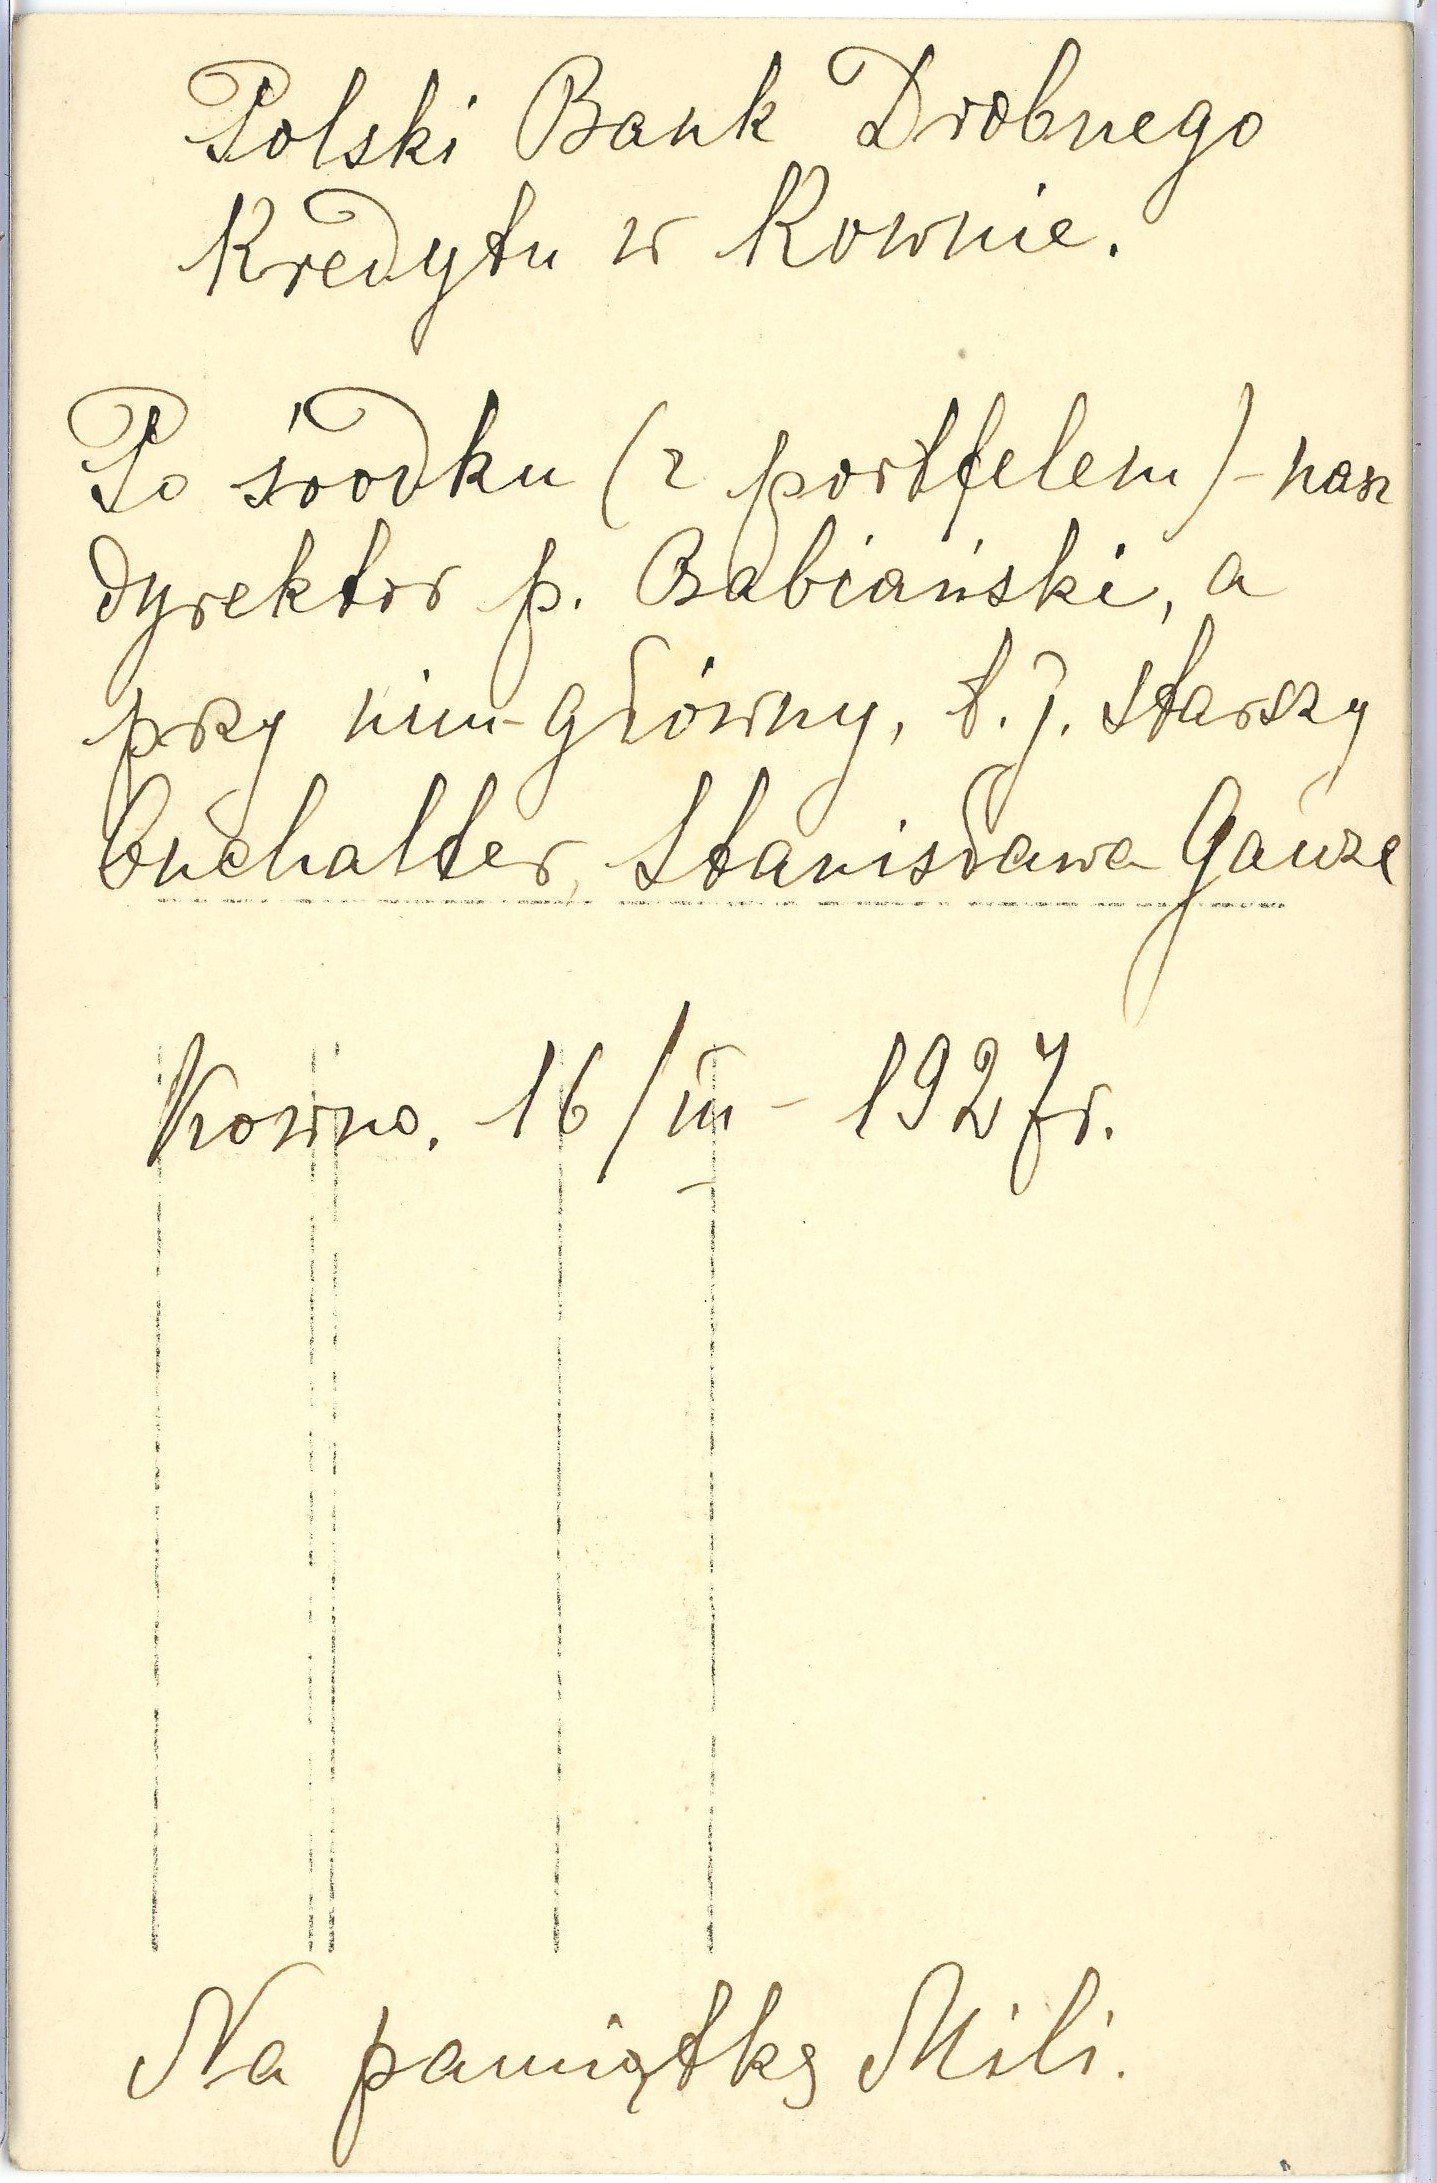 Polski Bank Drobnego
Kredytu w Kownie.
Po środku (z portfelem) - nasz
dyrektor p. Babiański, a
przy nim - główny, t. j. starszy
buchalter, Stanisława Gauze
Kowno. 16/III - 1927 r.
Na pamiątkę Mili.